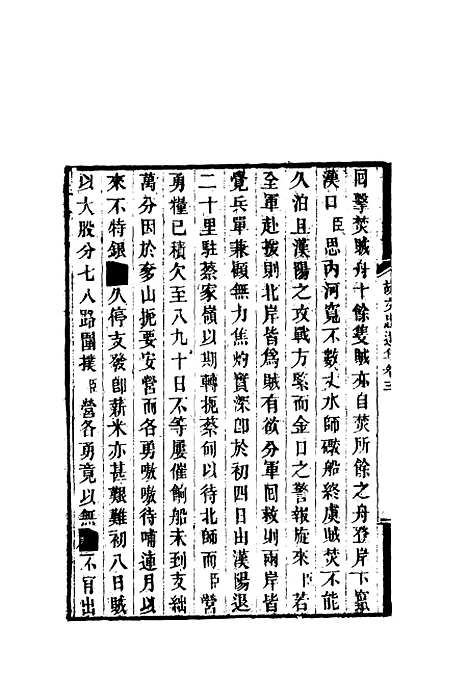 回擊焚賊舟十餘隻賊亦自焚所餘之舟登岸下竄
漢口臣思內河寬不數丈水師礮船終虞賊焚不能
久泊且漢陽之攻戰方緊而金口之警報旋來臣若
全軍赴援則北岸皆爲賊有欲分軍回救則兩岸皆
覺兵單兼顧無力焦灼實深卽於初四日由漢陽退
二十里駐蔡家嶺以期轉扼蔡甸以待北師而臣營
勇糧已積欠至八九十日不等屢催餉船未到支絀
萬分因於奓山扼要安營而各勇嗷嗷待哺連月以
來不特銀 久停支發卽薪米亦甚艱難初八日賊
以大股分七八路圍撲臣營各勇竟以無 不肯出
卷三